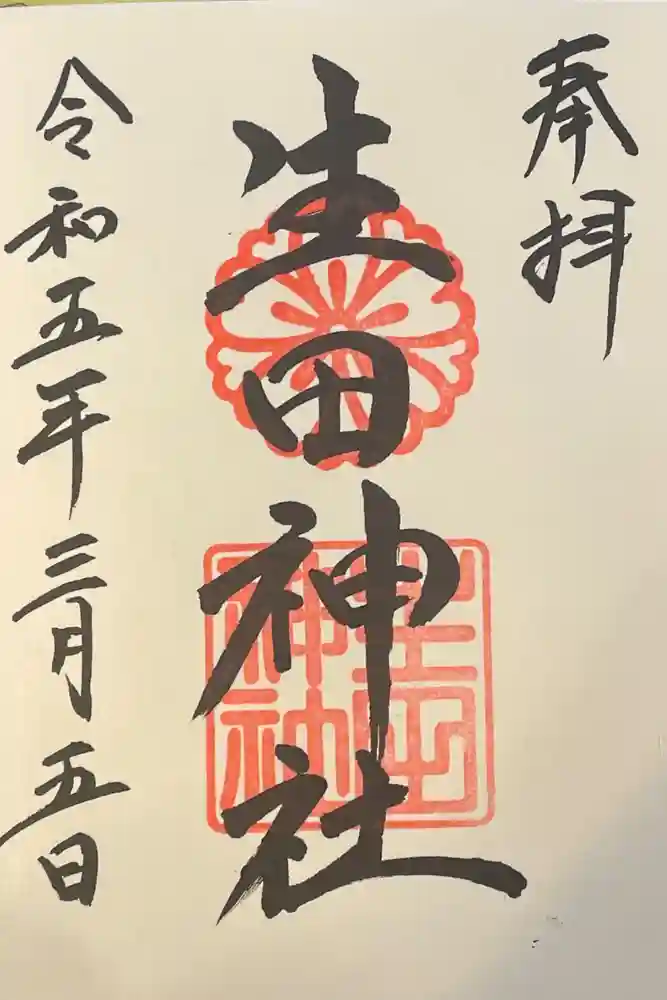 奉拝
生田神社
生田神社
令和五年三月五日